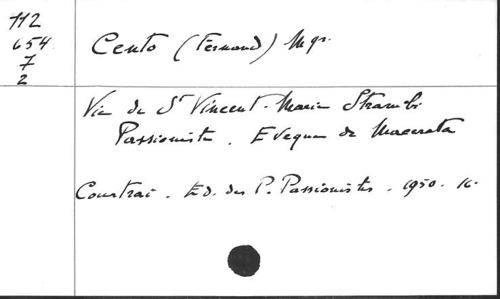 112
654
7
2
Cento (Fernand) Mgr.
Vie de St Vincent-Marie Strambi
Passioniste. Evêque de Macerata
Courtrai. Ed. des P. Passionistes. 1950. 16.